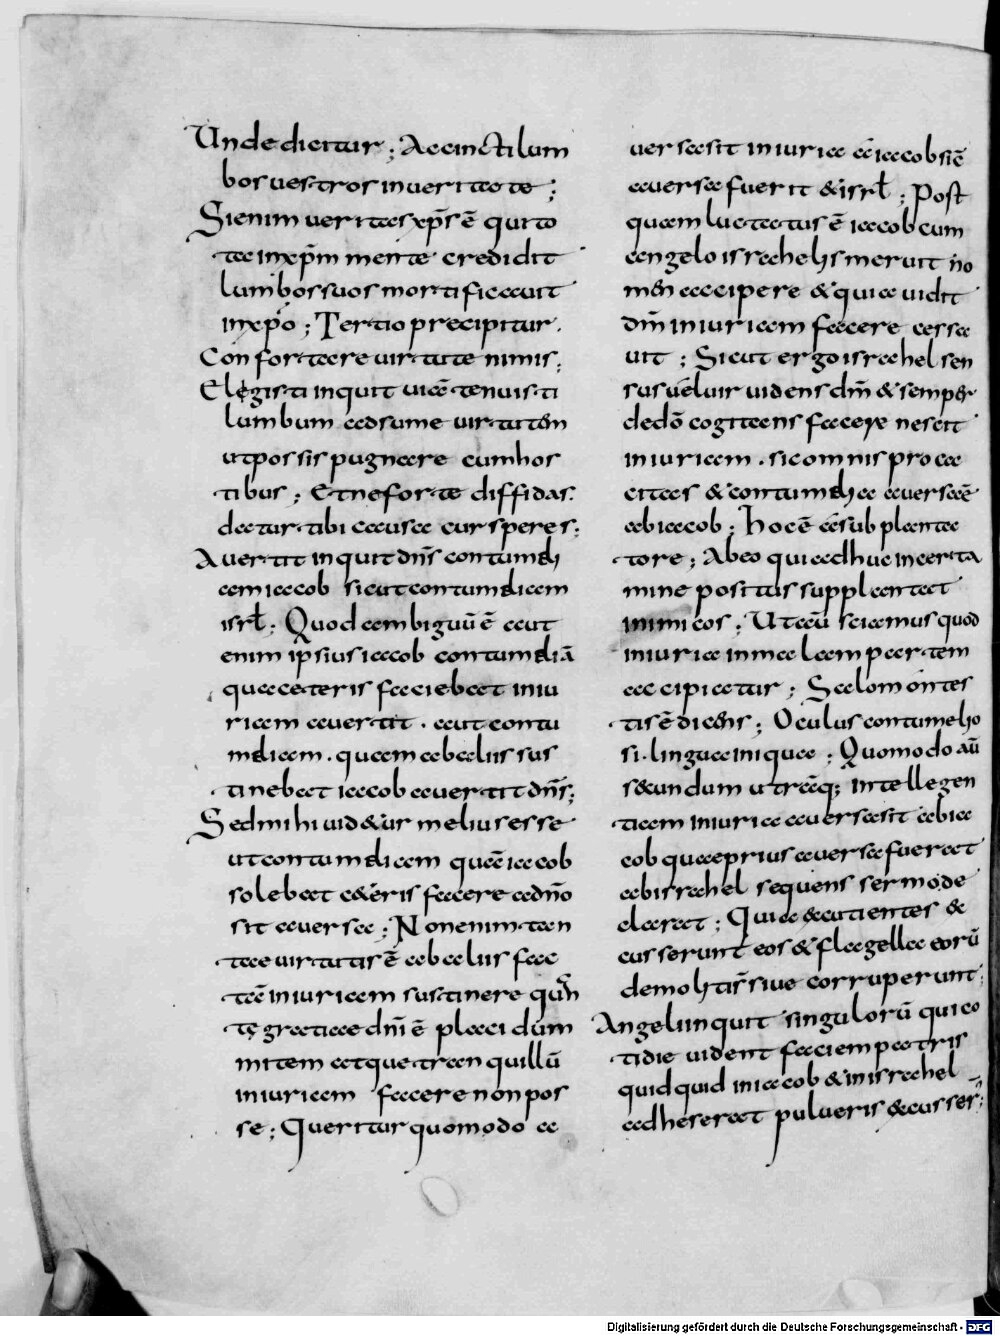 Unde dicitur; Accincti lum
bos vestros in veritate;
Si enim veritas xp̄s ē qui to
ta in xp̄m mente credidit
lumbos suos mortificavit
in xpō; Tertio precipitur.
Confortare virtute nimis;
Elegisti inquit viā tenuisti
lumbum adsume virtutem
ut possis pugnare cum hos
tibus; Et ne forte diffidas.
datur tibi causa cur speres;
Avertit inquit dn̄s contumeli
am iacob sicut contumeliam
isrl̄; Quod ambiguū ē aut
enim ipsius iacob contumeliā
qua ceteris faciebat iniu
riam avertit. aut contu
meliam. quam ab aliis sus
tinebat iacob avertit dn̄s;
Sed mihi videtur melius esse
ut contumeliam quā iacob
solebat ceteris facere a dn̄o
sit aversa; Non enim tan
tae virtutis ē ab aliis fac
tā iniuriam sustinere quan
tę gratiae dn̄i ē placidum
mitem atque tranquillū
iniuriam facere non pos
se; Queritur quomodo a
versa sit iniuria a iacob si n̄
aversa fuerit et isrl̄; Post
quam luctatus ē iacob cum
angelo israhelis meruit no
men accipere et quia vidit
dm̄ iniuriam facere cessa
vit; Sicut ergo israhel sen
sus vel vir videns dm̄ et semper
de dō cogitans facere nescit
iniuriam. sic omnis proca
citas et contumelia aversa ē
ab iacob; Hoc ē sub planta
tore; Ab eo qui adhuc in certa
mine positus supplantat
inimicos; Ut aū sciamus quod
iniuria in malam partem
accipiatur; Salomon tes
tis ē dicens; Oculus contumelio
si. lingua iniqua; Quomodo aū
secundum utrāq; intellegen
tiam iniuria aversa sit ab ia
cob quae prius aversa fuerat
ab israhel sequens sermo de
clarat; Quia excutientes ex
cusserunt eos et flagella eorū
demolitis sive corruperunt;
Angeli inquit singulorū qui co
tidie vident faciem patris
quidquid in iacob et in israhel
adheserat pulveris excusser;
Digitalisierung gefördert durch die Deutsche Forschungsgemeinschaft - DFG